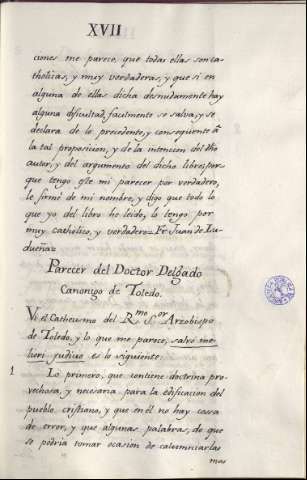 XVII
ciones me parece, que todas ellas son ca-
tholicas, y muy verdaderas, y que si en
alguna de ellas dicha desnudamente hay
alguna dificultad, facilmente se salva, y se
declara de lo precedente, y consequente á
la tal proposicion, y de la intencion del dho
autor, y del argumento del dicho libro; por-
que tengo este mi parecer por verdadero,
le firmé de mi nombre, y digo que todo lo
que yo del libro he leido, lo tengo por
muy catholico, y verdadero = Fr. Juan de Lu-
dueña =
Parecer del Doctor Delgado
Canonigo de Toledo.
Vi el Cathecismo del Rmo Sor Arzobispo
de Toledo, y lo que me parece, salvo me-
liori judicio es lo siguiente:
1 Lo primero, que contiene doctrina pro-
vechosa, y necesaria para la edificacion del
pueblo cristiano, y que en él no hay cosa
de error, y que algunas palabras, de que
se podria tomar ocasion de calumniarlas
mas